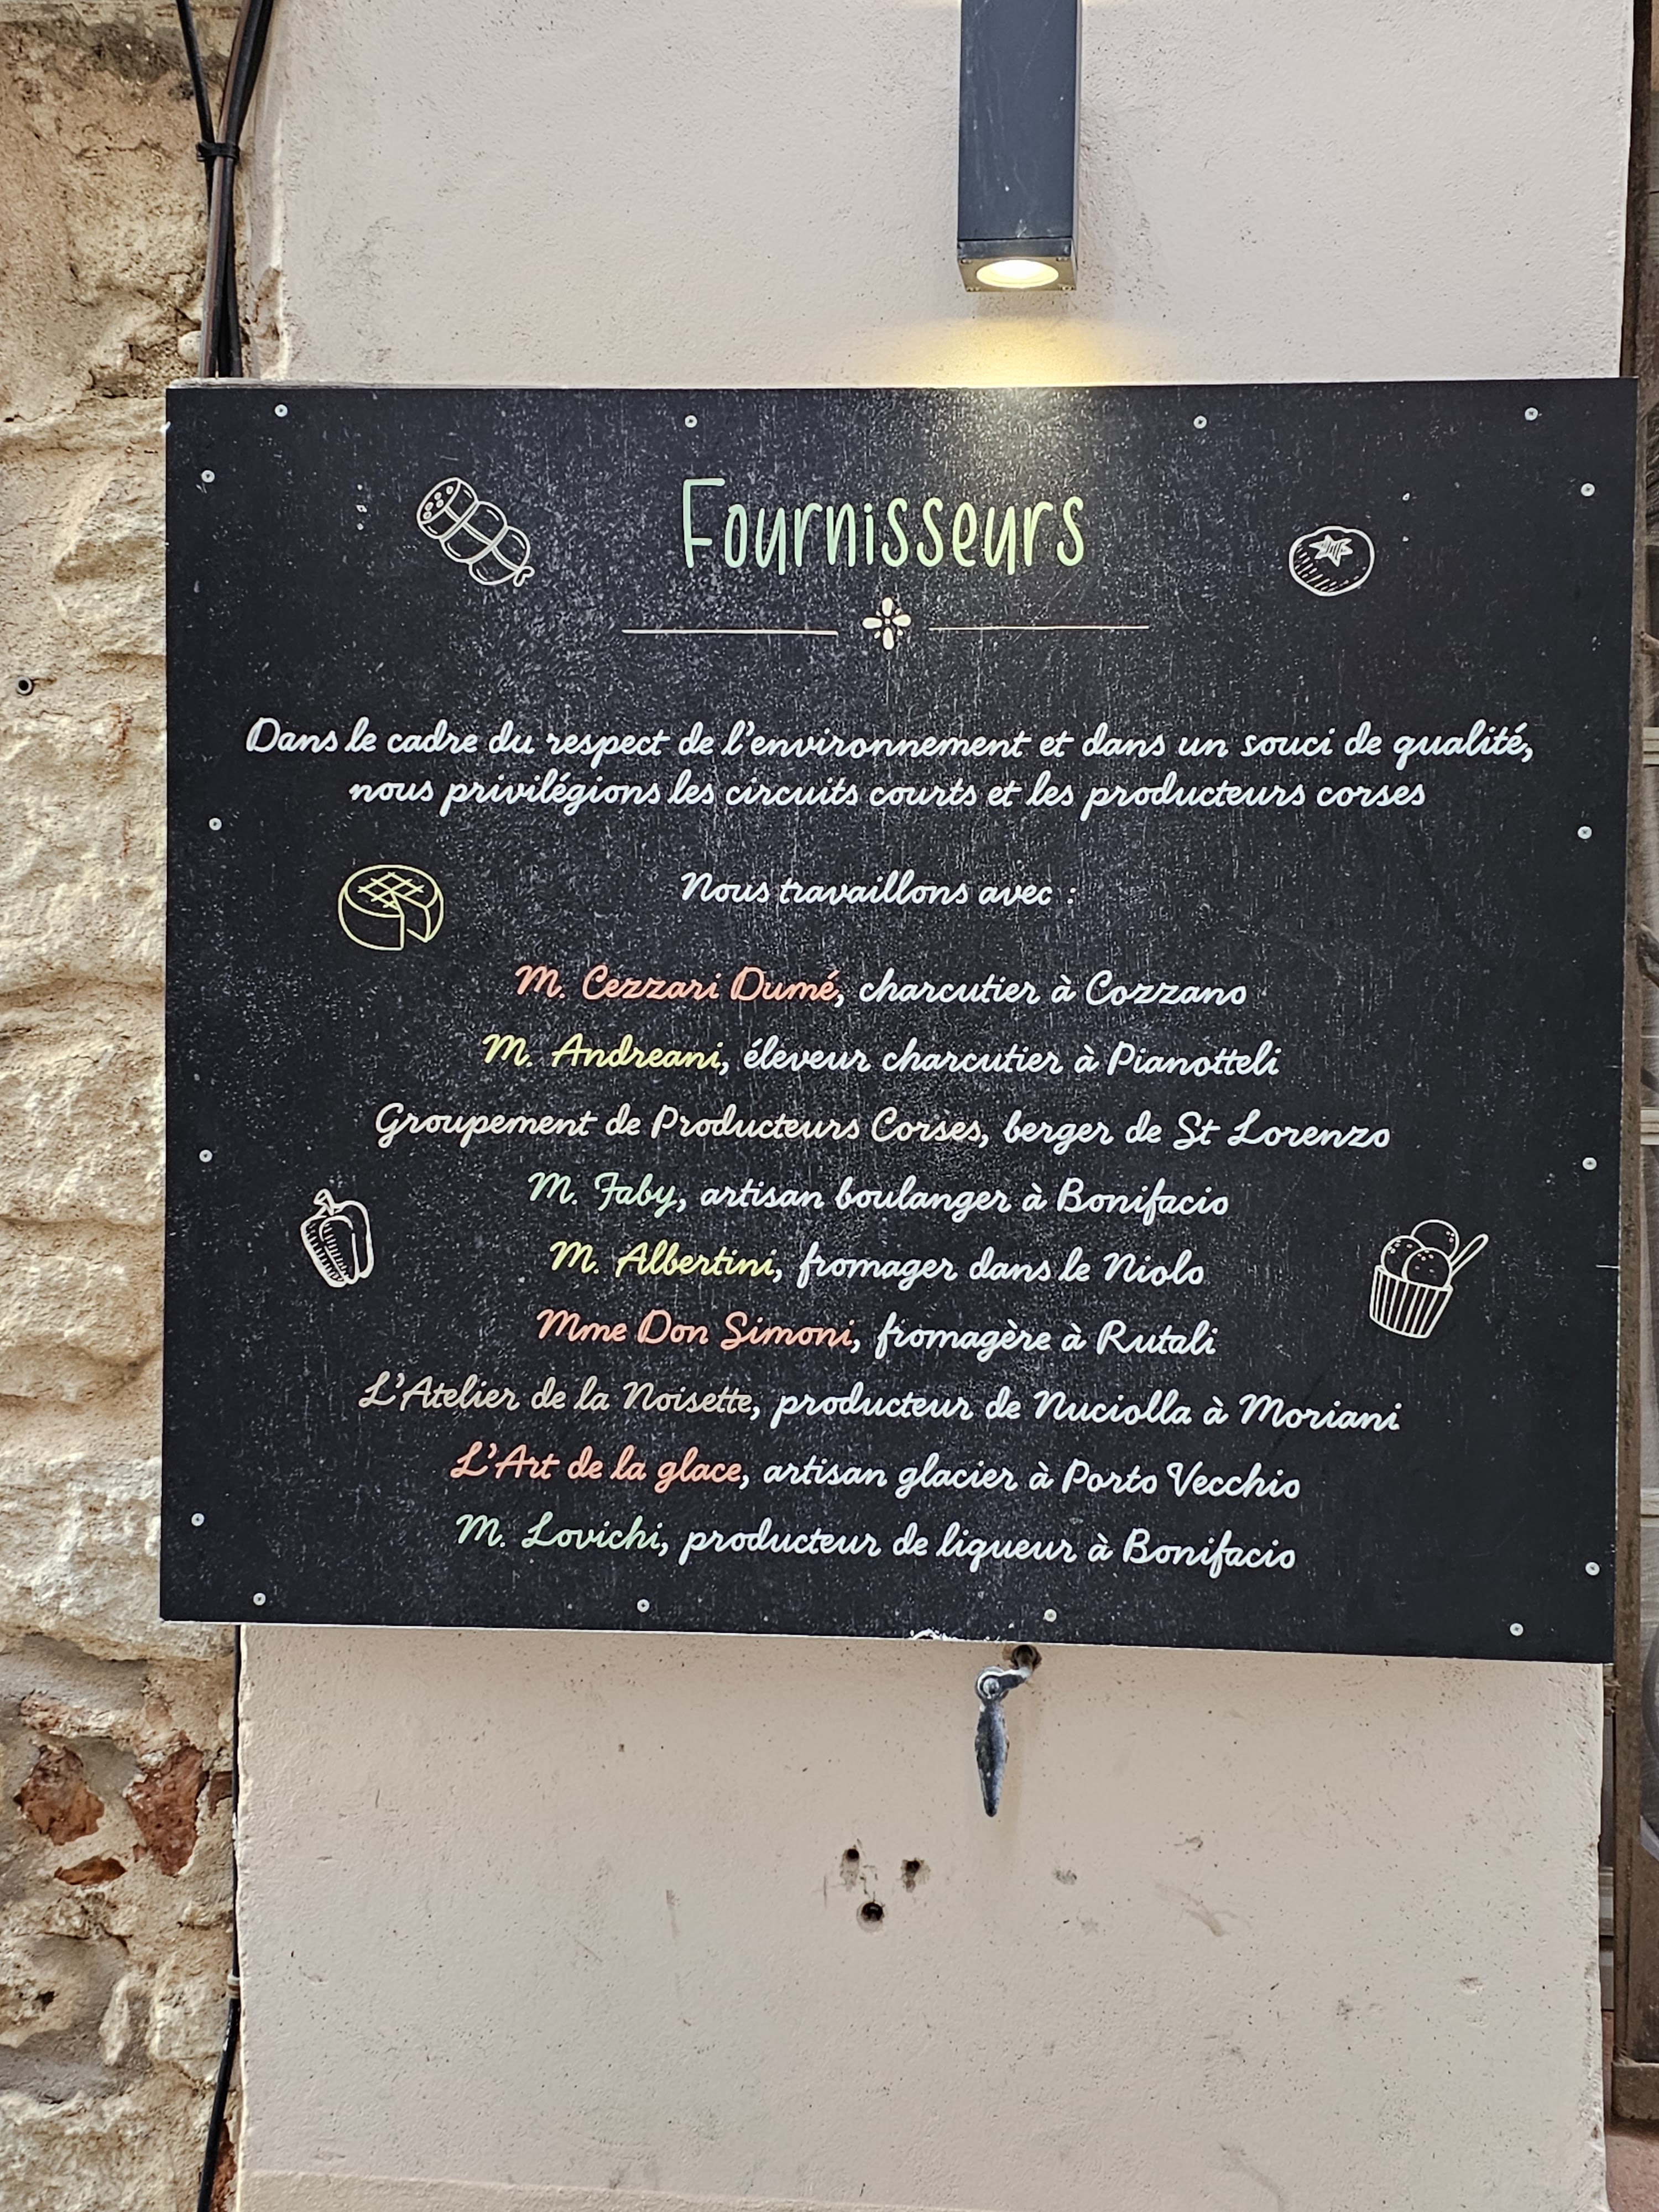 Fournisseurs
Dans le cadre du respect de l'environnement et dans un souci de qualité,
nous privilégions les circuits courts et les producteurs corses
Nous travaillons avec :
M. Cezzari Dumé, charcutier à Cozzano
M. Andreani, éleveur charcutier à Pianotteli
Groupement de Producteurs Corses, berger de St Lorenzo
M. Faby, artisan boulanger à Bonifacio
M. Albertini, fromager dans le Niolo
Mme Don Simoni, fromagère à Rutali
L'Atelier de la Noisette, producteur de Nuciolla à Moriani
L'Art de la glace, artisan glacier à Porto Vecchio
M. Lovichi, producteur de liqueur à Bonifacio